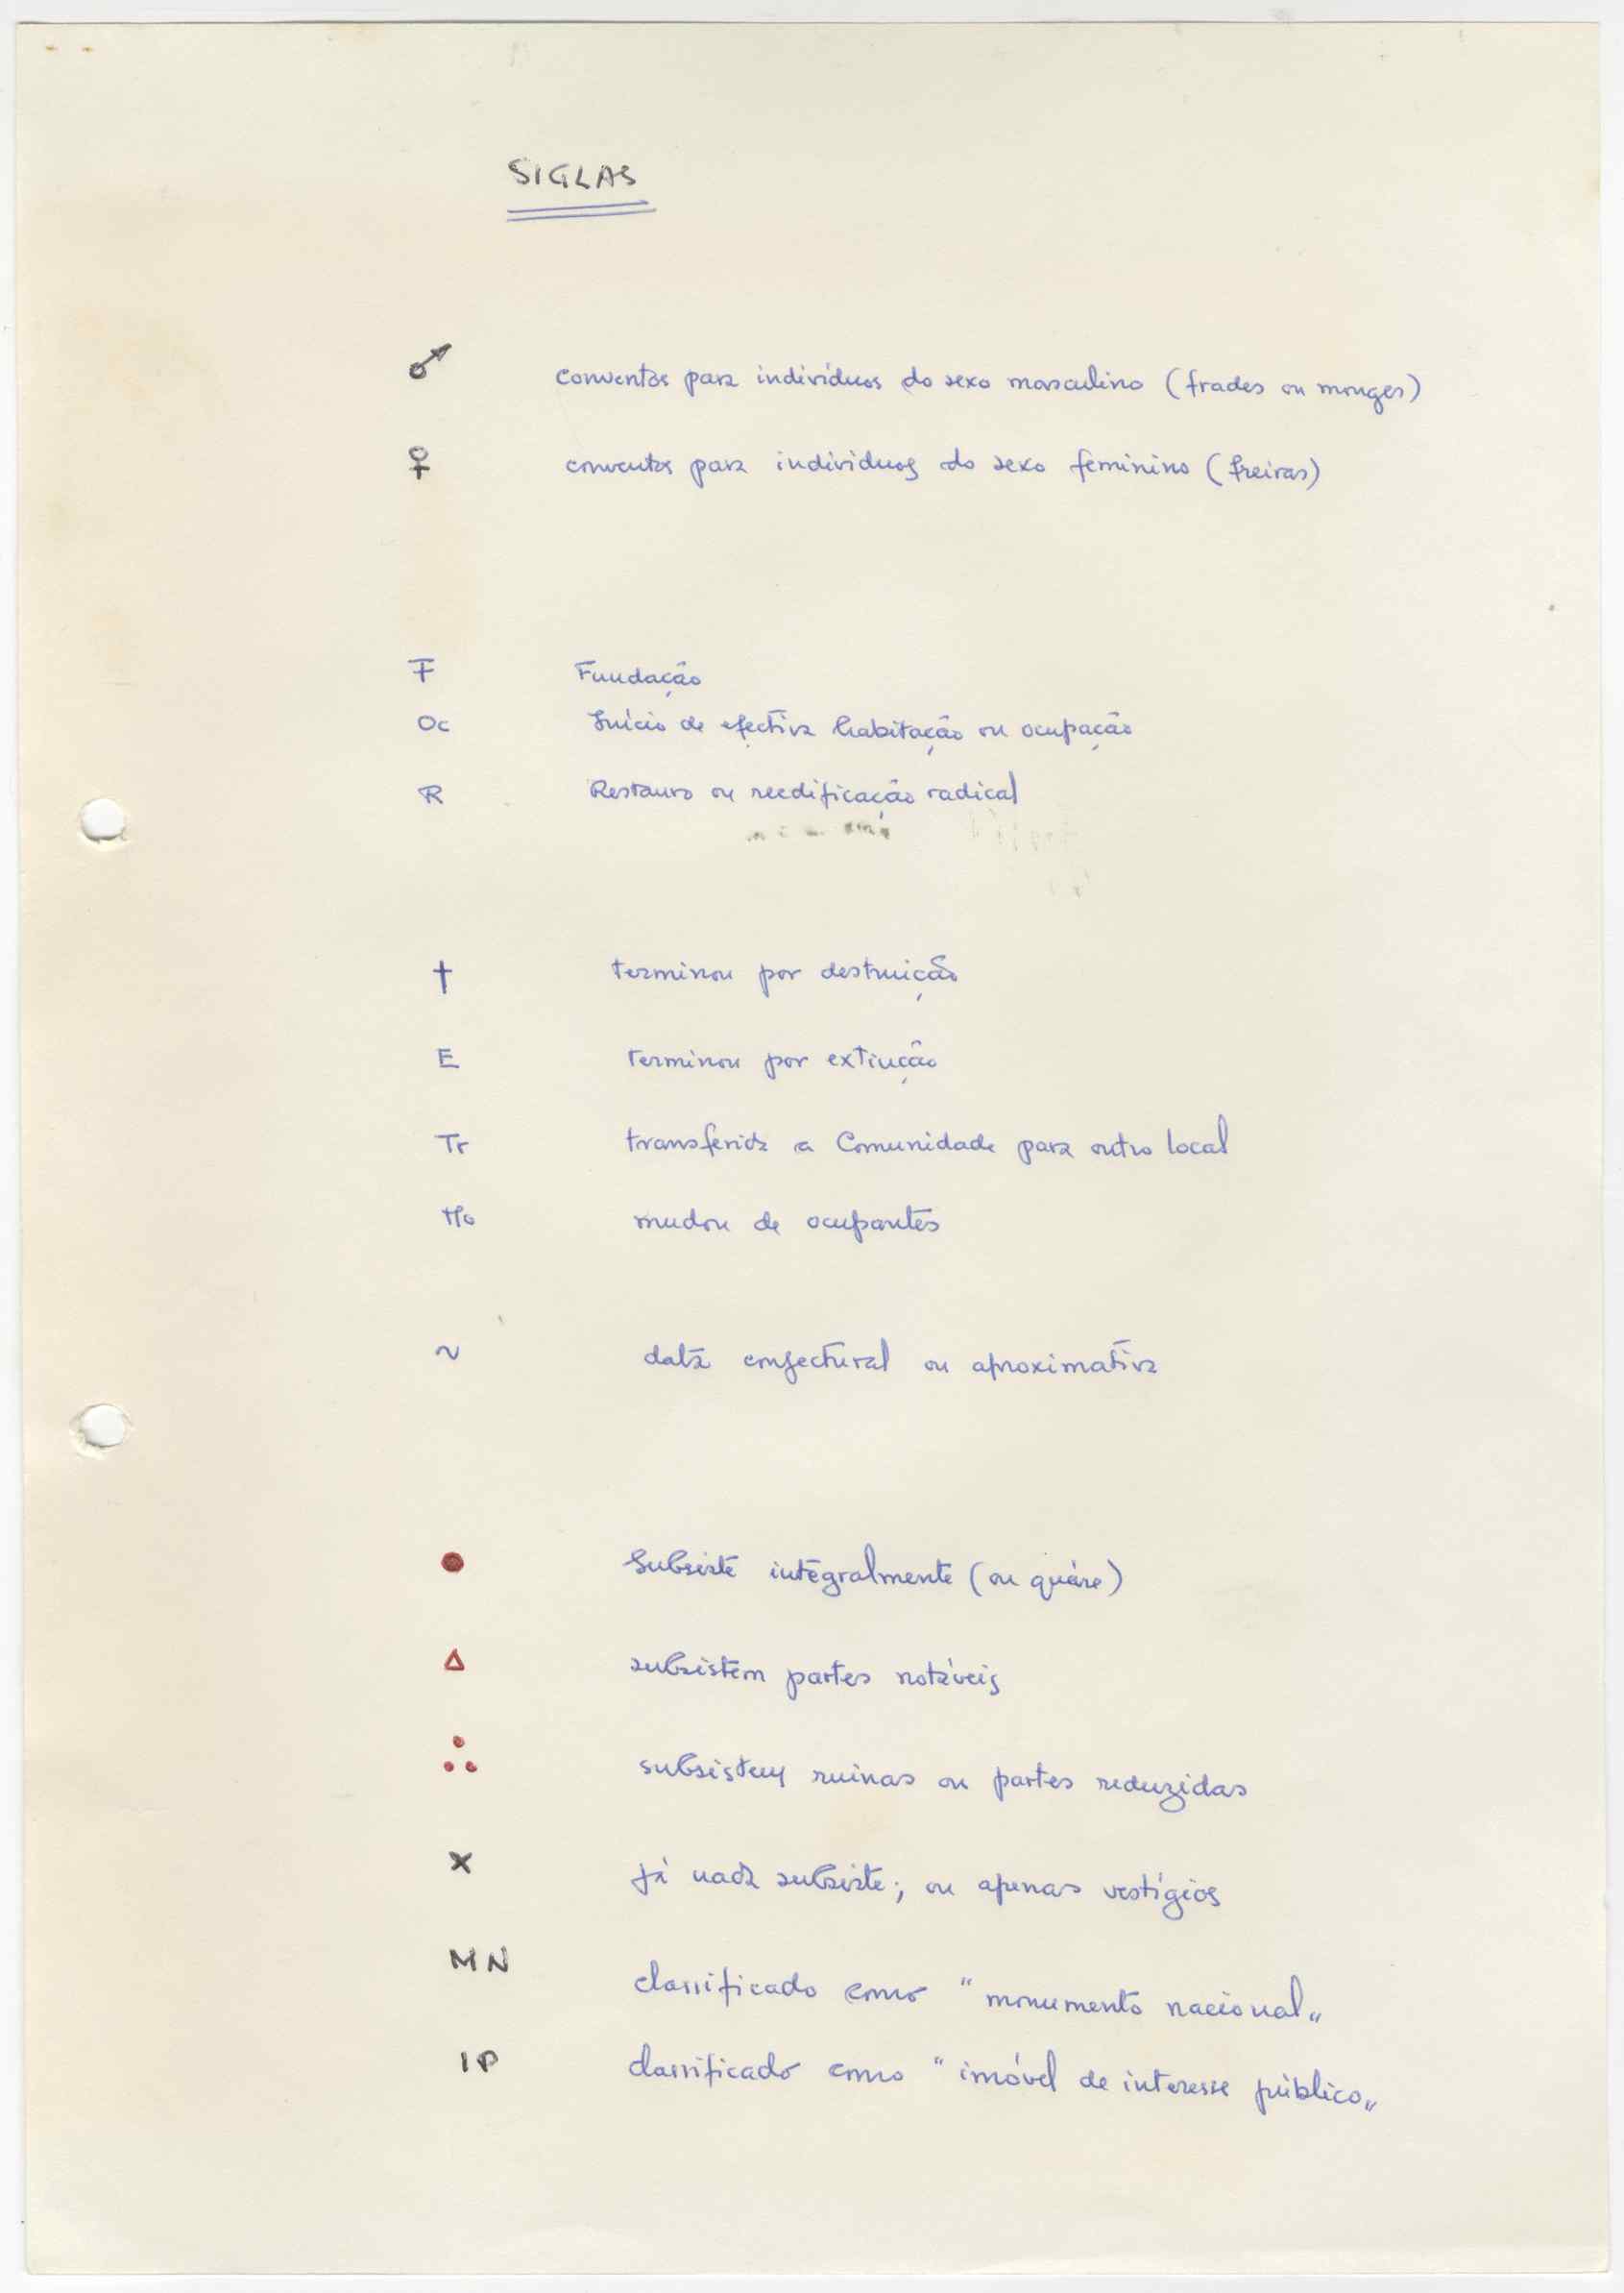 SIGLAS
♂ conventos para indivíduos do sexo masculino (frades ou monges)
♀ conventos para indivíduos do sexo feminino (freiras)
F Fundação
Oc Início de efectiva habitação ou ocupação
R Restauro ou reedificação radical
† terminou por destruição
E terminou por extinção
Tr transferida a Comunidade para outro local
mudou de ocupantes
~ data conjectural ou aproximativa
● Subsiste integralmente (ou quáse)
△ subsistem partes notáveis
∴ subsistem ruinas ou partes reduzidas
× já nada subsiste; ou apenas vestígios
MN classificado como "monumento nacional"
IP classificado como "imóvel de interesse público"